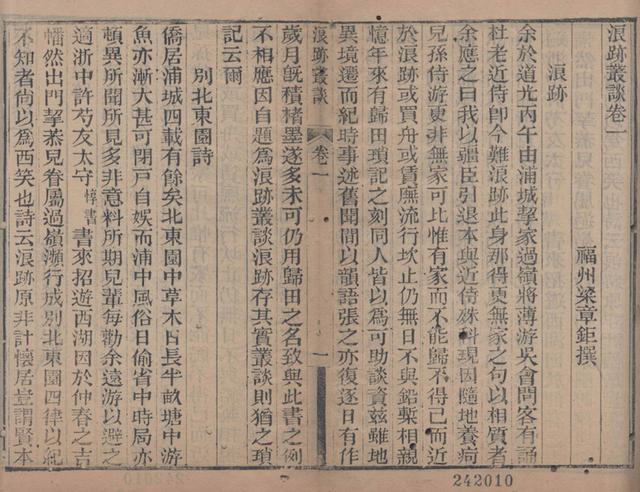 浪跡叢談卷一
福州梁章鉅撰
浪跡
余於道光丙午由浦城挈家過嶺將薄游吳會問客有誦
杜老近侍卽今難浪跡此身那得更無家之句以相質者
余應之曰我以疆臣引退本與近侍殊科現因隨地養痾
兒孫侍游更非無家可比惟有家而不能歸不得已而近
於浪跡或買舟或賃廡流行坎止仍無日不與鉛槧相親
憶年來有歸田瑣記之刻同人皆以爲可助談資茲雖地
異境遷而紀時事述舊聞間以韻語張之亦復逐日有作
浪跡叢談
卷一
一
歲月旣積楮墨遂多未可仍用歸田之名致與此書之例
不相應因自題爲浪跡叢談浪跡存其實叢談則猶之瑣
記云爾
別北東園詩
僑居浦城四載有餘矣北東園中草木日長半畝塘中游
魚亦漸大甚可閉戸自娱而浦中風俗日偷省中時局亦
頓異所聞所見多非意料所期兒輩每勸余遠游以避之
適浙中許芍友太守 惇書 書來招遊西湖因於仲春之吉
幡然出門挈眷兒屬過嶺瀕行成別北東園四律以紀
不知者尙以爲西笑也詩云浪跡原非計懷居豈謂賢本
242010